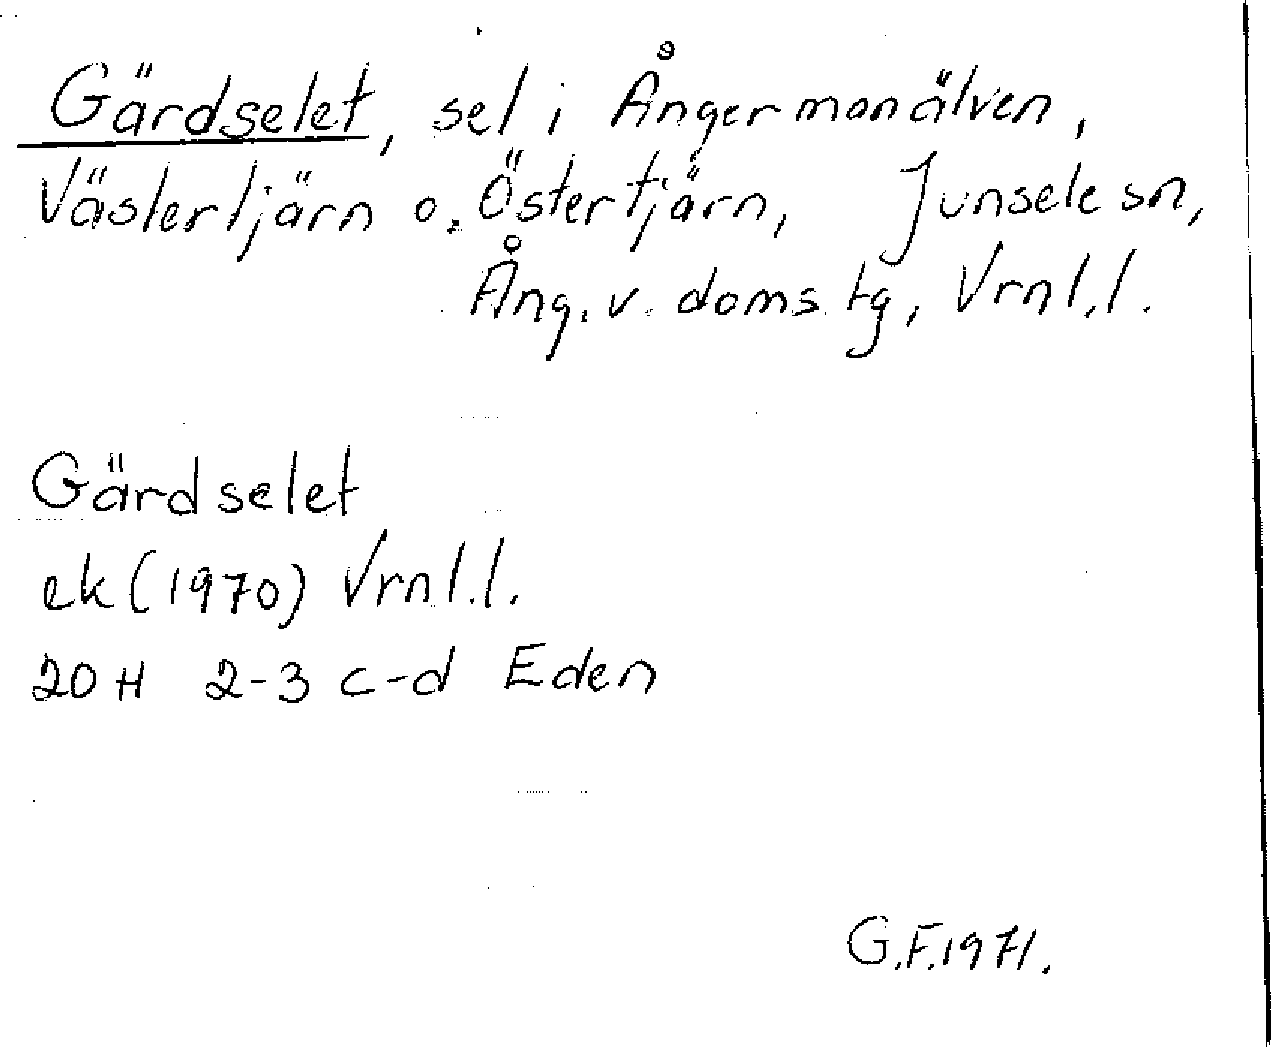 Gärdselet, sel i Ångermanälven,
Västertjärn o. Östertjärn, Junsele sn,
Ång. v. doms. tg, Vrnl.l.
Gärdselet
ek (1970) Vrnl.l.
20 H 2-3 c-d Eden
G.F. 1971.